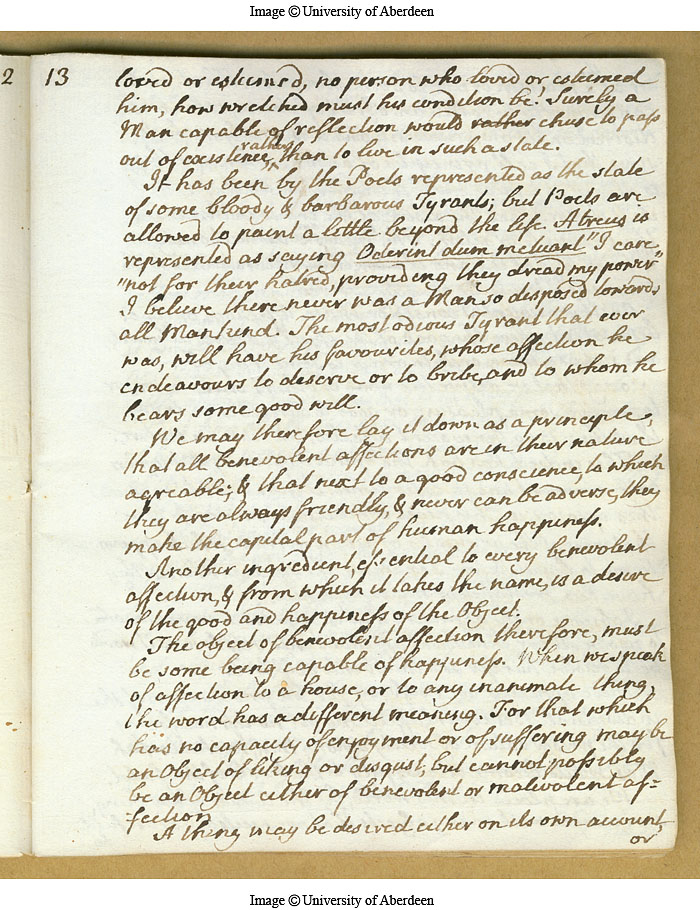 Image © University of Aberdeen
2
13
loved or esteemed, no person who loved or esteemed
him, how wretched must his condition be! Surely a
Man capable of reflection would rather chuse to pass
out of existence, rather than to live in such a state.
It has been by the Poets represented as the state
of some bloody & barbarous Tyrants; but Poets are
allowed to paint a little beyond the life. Atreus is
represented as saying Oderint dum metuant "I care
"not for their hatred, providing they dread my power"
I believe there never was a Man so disposed towards
all Mankind. The most odious Tyrant that ever
was, will have his favourites, whose affection he
endeavours to deserve or to bribe, and to whom he
bears some good will.
We may therefore lay it down as a principle,
that all benevolent affections are in their nature
agreable; & that next to a good conscience, to which
they are always friendly, & never can be adverse, they
make the capital part of human happiness.
Another ingredient, essential to every benevolent
affection, & from which it takes the name, is a desire
of the good and happiness of the Object.
The object of benevolent affection therefore, must
be some being capable of happiness. When we speak
of affection to a house, or to any inanimate thing,
the word has a different meaning. For that which
has no capacity of enjoyment or of suffering may be
an Object of liking or disgust, but cannot possibly
be an Object either of benevolent or malivolent af=
=fection
A thing may be desired either on its own account,
or
Image © University of Aberdeen